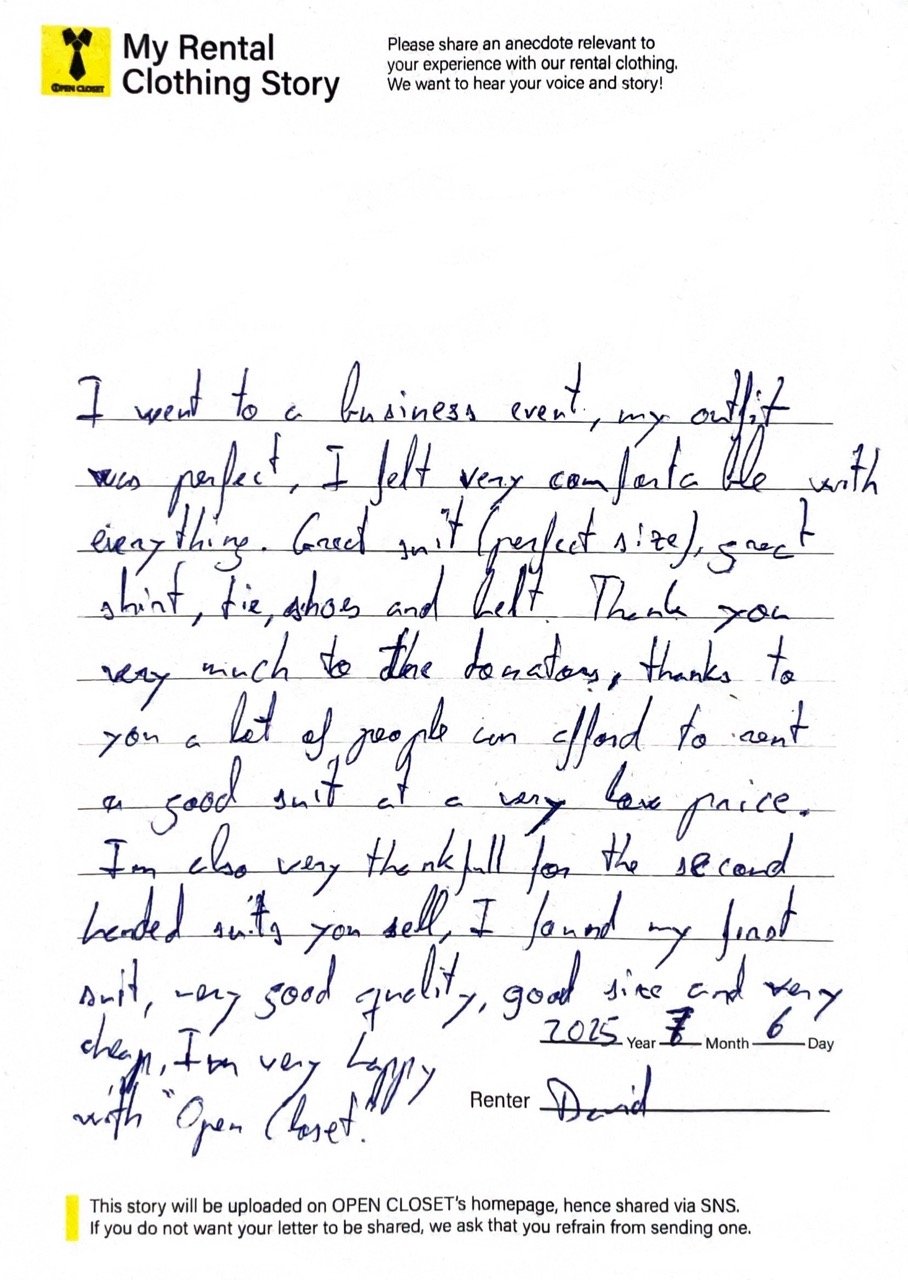 OPEN CLOSET
My Rental
Clothing Story
Please share an anecdote relevant to
your experience with our rental clothing.
We want to hear your voice and story!
I went to a business event, my outfit
was perfect, I felt very comfortable with
everything. Great suit (perfect size), great
shirt, tie, shoes and belt. Thank you
very much to the donators, thanks to
you a lot of people can afford to rent
a good suit at a very low price.
I'm also very thankfull for the second
handed suits you sell, I found my first
suit, very good quality, good size and very
cheap, I'm very happy
with "Open Closet".
2025 Year 7 Month 6 Day
Renter David
This story will be uploaded on OPEN CLOSET's homepage, hence shared via SNS.
If you do not want your letter to be shared, we ask that you refrain from sending one.